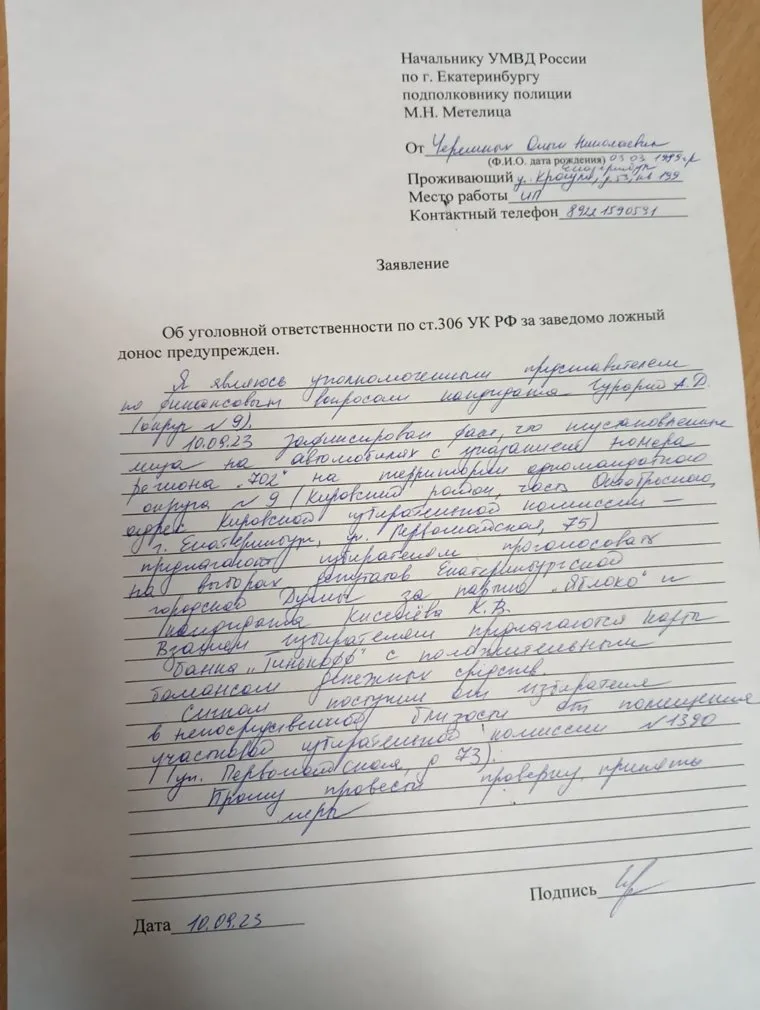 Начальнику УМВД России
по г. Екатеринбургу
подполковнику полиции
М.Н. Метелица
От Черемных Ольги Николаевны
(Ф.И.О. дата рождения) 03.03.1995г.р
Екатеринбург
Проживающий ул. д. 53, кв 199
Место работы ИП
Контактный телефон 89221590591
Заявление
Об уголовной ответственности по ст.306 УК РФ за заведомо ложный
донос предупрежден.
Я являюсь уполномоченным представителем
по финансовым вопросам кандидата А.Д.
(округ №9).
10.09.23 зафиксирован факт, что неустановленные
лица на автомобилях с указанием номера
региона "702" на территории одномандатного
округа №9 (Кировский район, часть Октябрьского,
адрес Кировской избирательной комиссии —
г. Екатеринбург, ул. Первомайская, 75)
предлагают избирателям проголосовать
на выборах депутатов Екатеринбургской
городской Думы за партию "Яблоко" и
кандидата Киселёва К.В.
Взамен избирателям предлагаются карты
банка "Тинькофф" с положительным
балансом денежных средств.
Сигнал поступил от избирателя
в непосредственной близости от помещения
участковой избирательной комиссии №1390
(ул. Первомайская, д 73).
Прошу провести проверку, принять
меры
Подпись
Дата 10.09.23